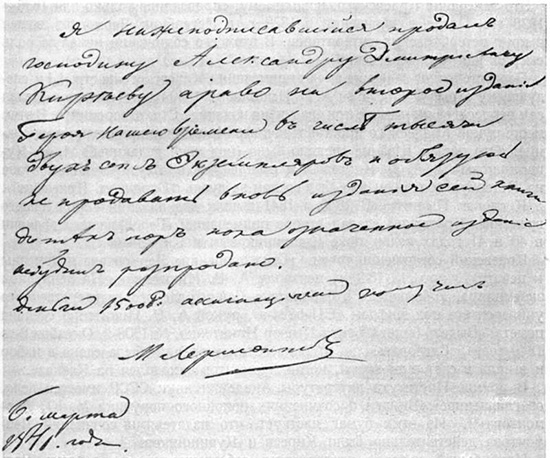 Я нижеподписавшійся продалъ
господину Александру Дмитриевичу
Кирѣеву право на второе изданіе
Героя нашего времени въ числѣ тысячи
двухъ сотъ Экземпляровъ и обязуюсь
не продавать вновь изданія сей книги
до тѣхъ поръ пока означенное изданіе
небудетъ розпродано.
деньги 1500 р. ассигнаціями получилъ
М. Лермонтовъ
6. марта
1841. года.